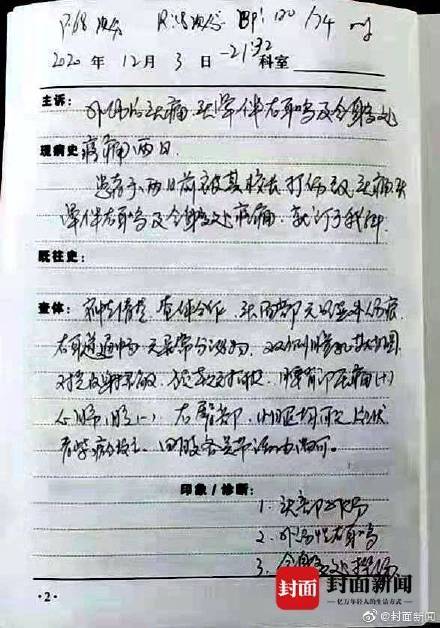 P:68次/分 R:18次/分 BP:120/74 mg
2020 年 12 月 3 日 -21:32 科室
主诉: 外伤后头痛、头晕伴右耳鸣及全身多处
现病史 疼痛两日.
患者于两日前被其校长打伤致头痛头
晕伴右耳鸣及全身多处疼痛. 就诊于我科.
既往史:
查体: 神志清楚, 查体合作, 头面部无明显外伤痕
右耳道通畅, 无异常分泌物, 双侧瞳孔等大等圆
对光反射灵敏, 颈 压痛(+)
心肺 腹(-) 右臀部, 可见片状
四肢 活动尚可.
印象/诊断:
1. 头部外伤
2. 外伤性右耳鸣
3. 全身多处
封面 封面新闻
亿万年轻人的生活方式
·2·
@封面新闻